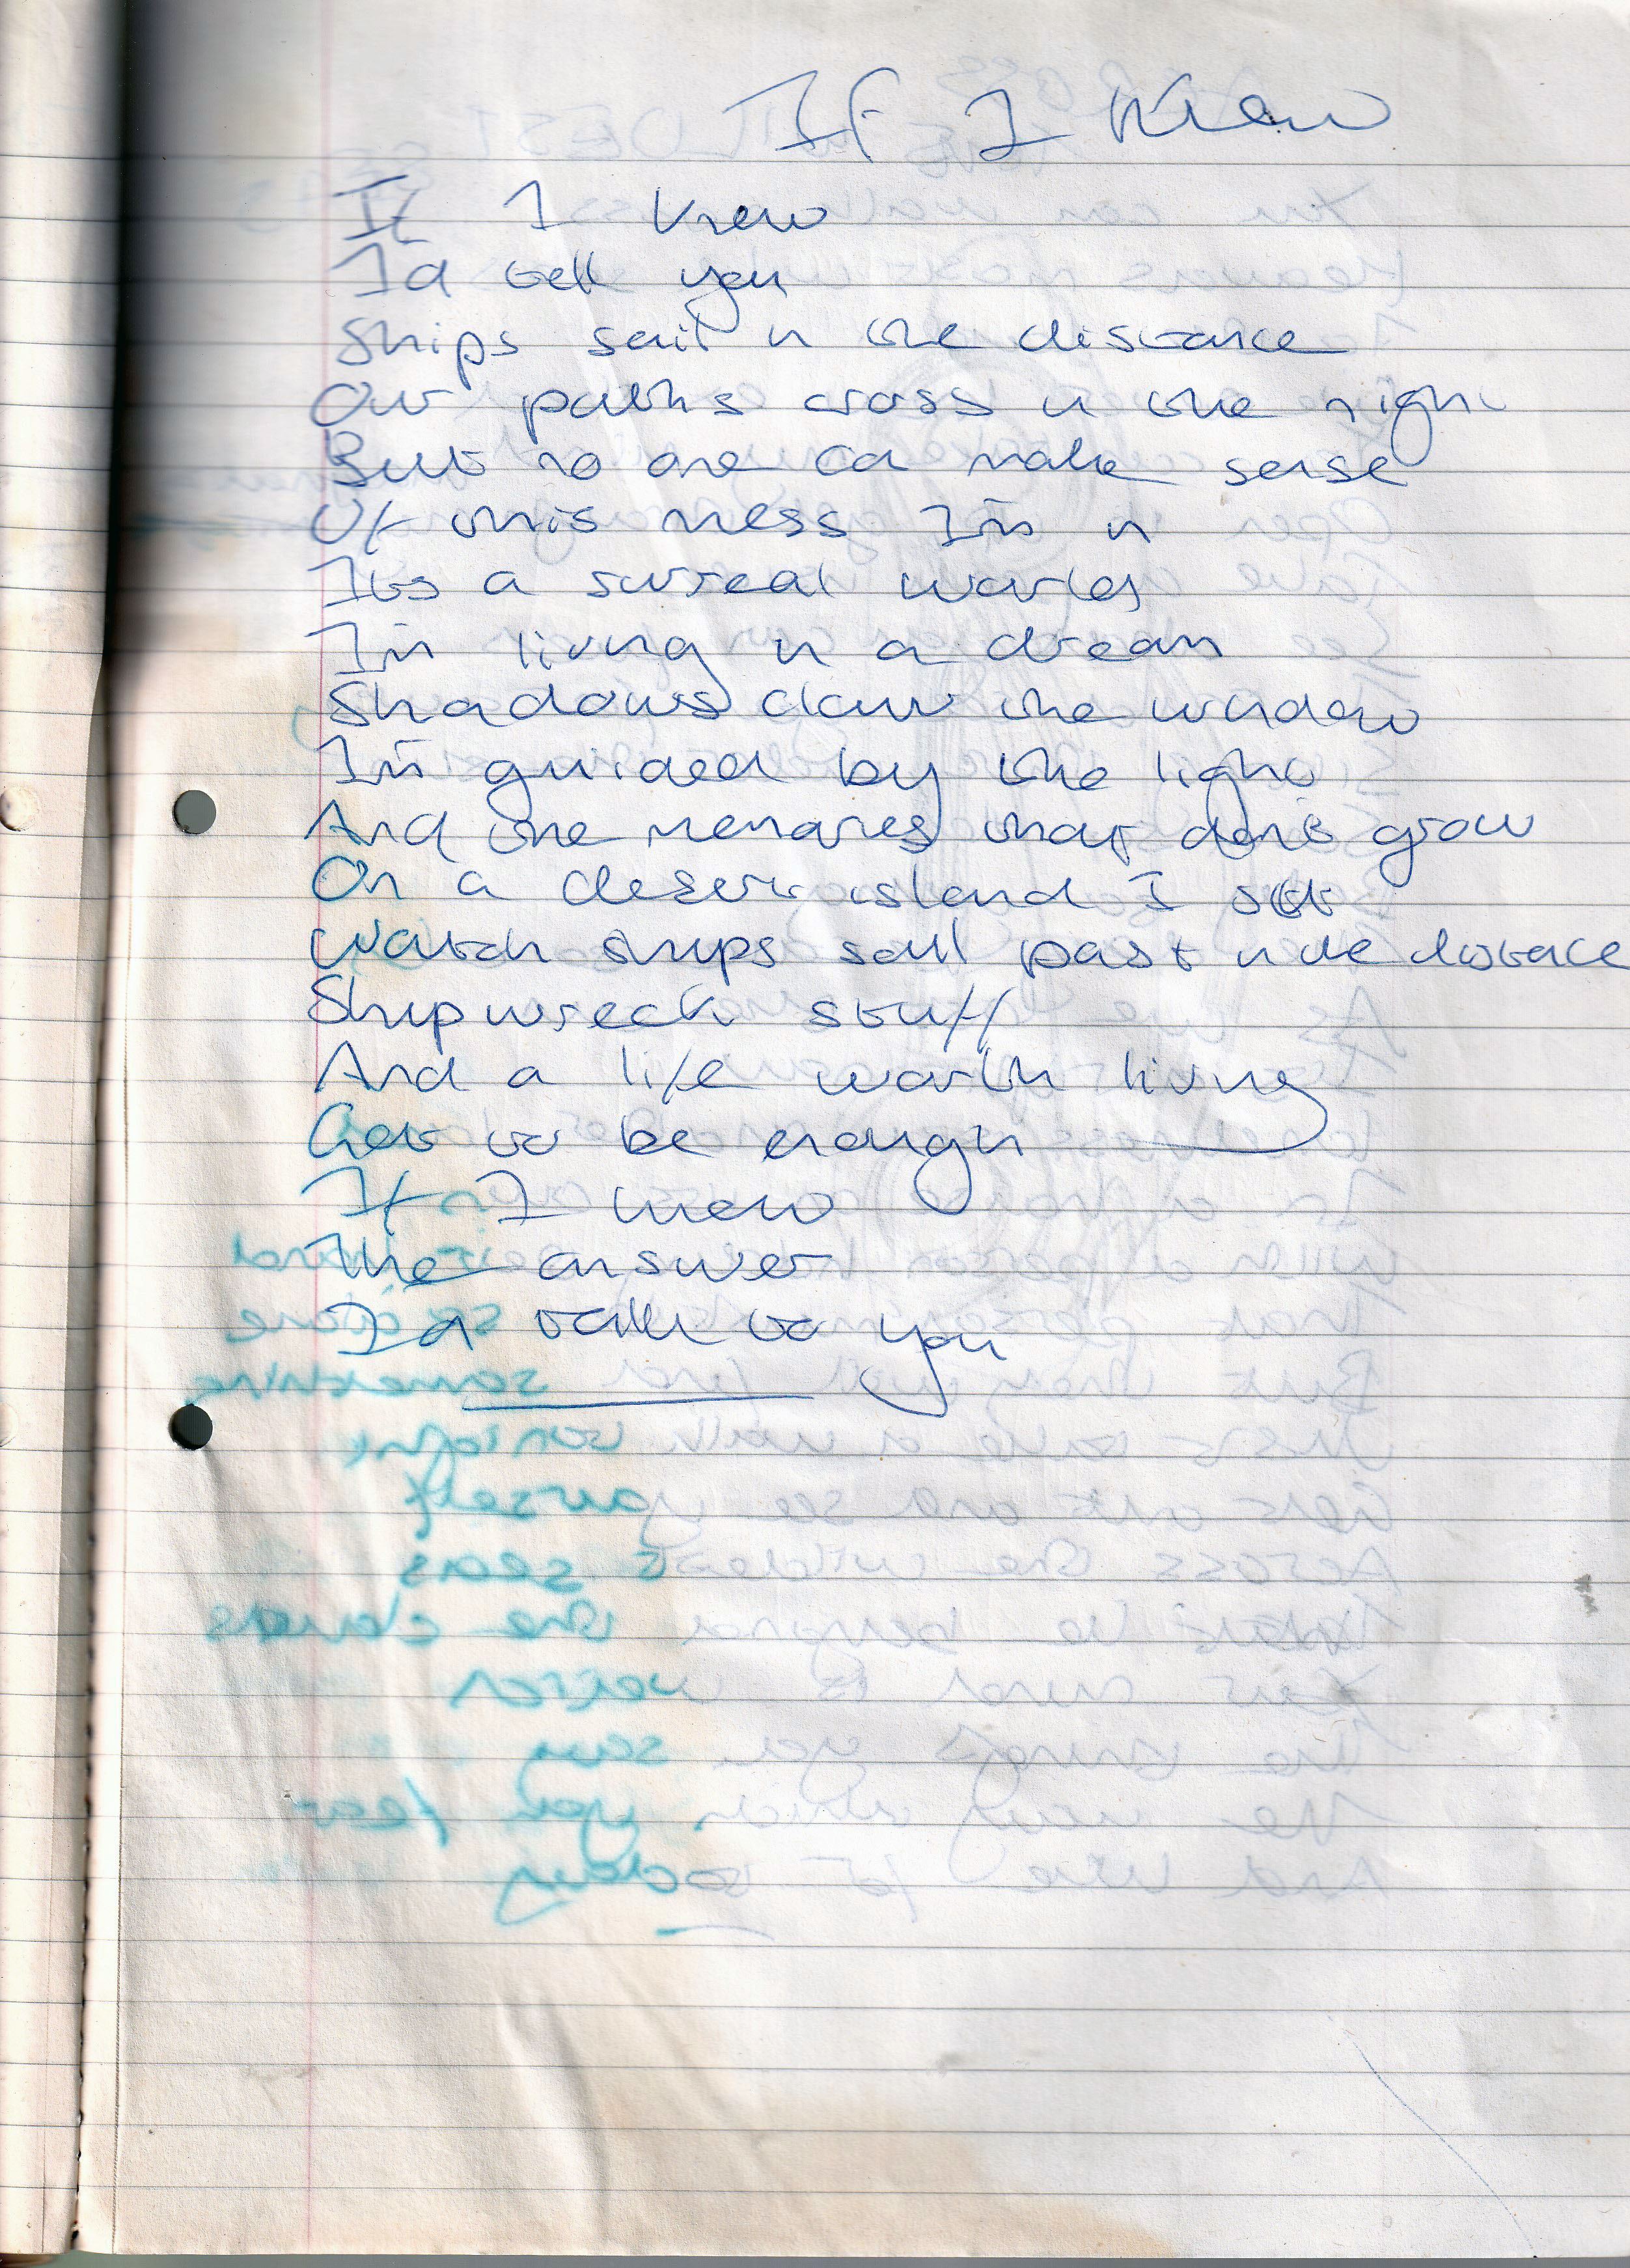 If I Knew
If I knew
Id tell you
Ships sail in the distance
Our paths cross in the night
But no one can make sense
Of this mess Im in
Its a surreal world
Im living in a dream
Shadows claw the window
Im guided by the light
And the memories that dont grow
On a desert island I sit
Watch ships sail past in the distance
Shipwreck stuff
And a life worth living
Got to be enough
If I knew
The answer
Id talk to you